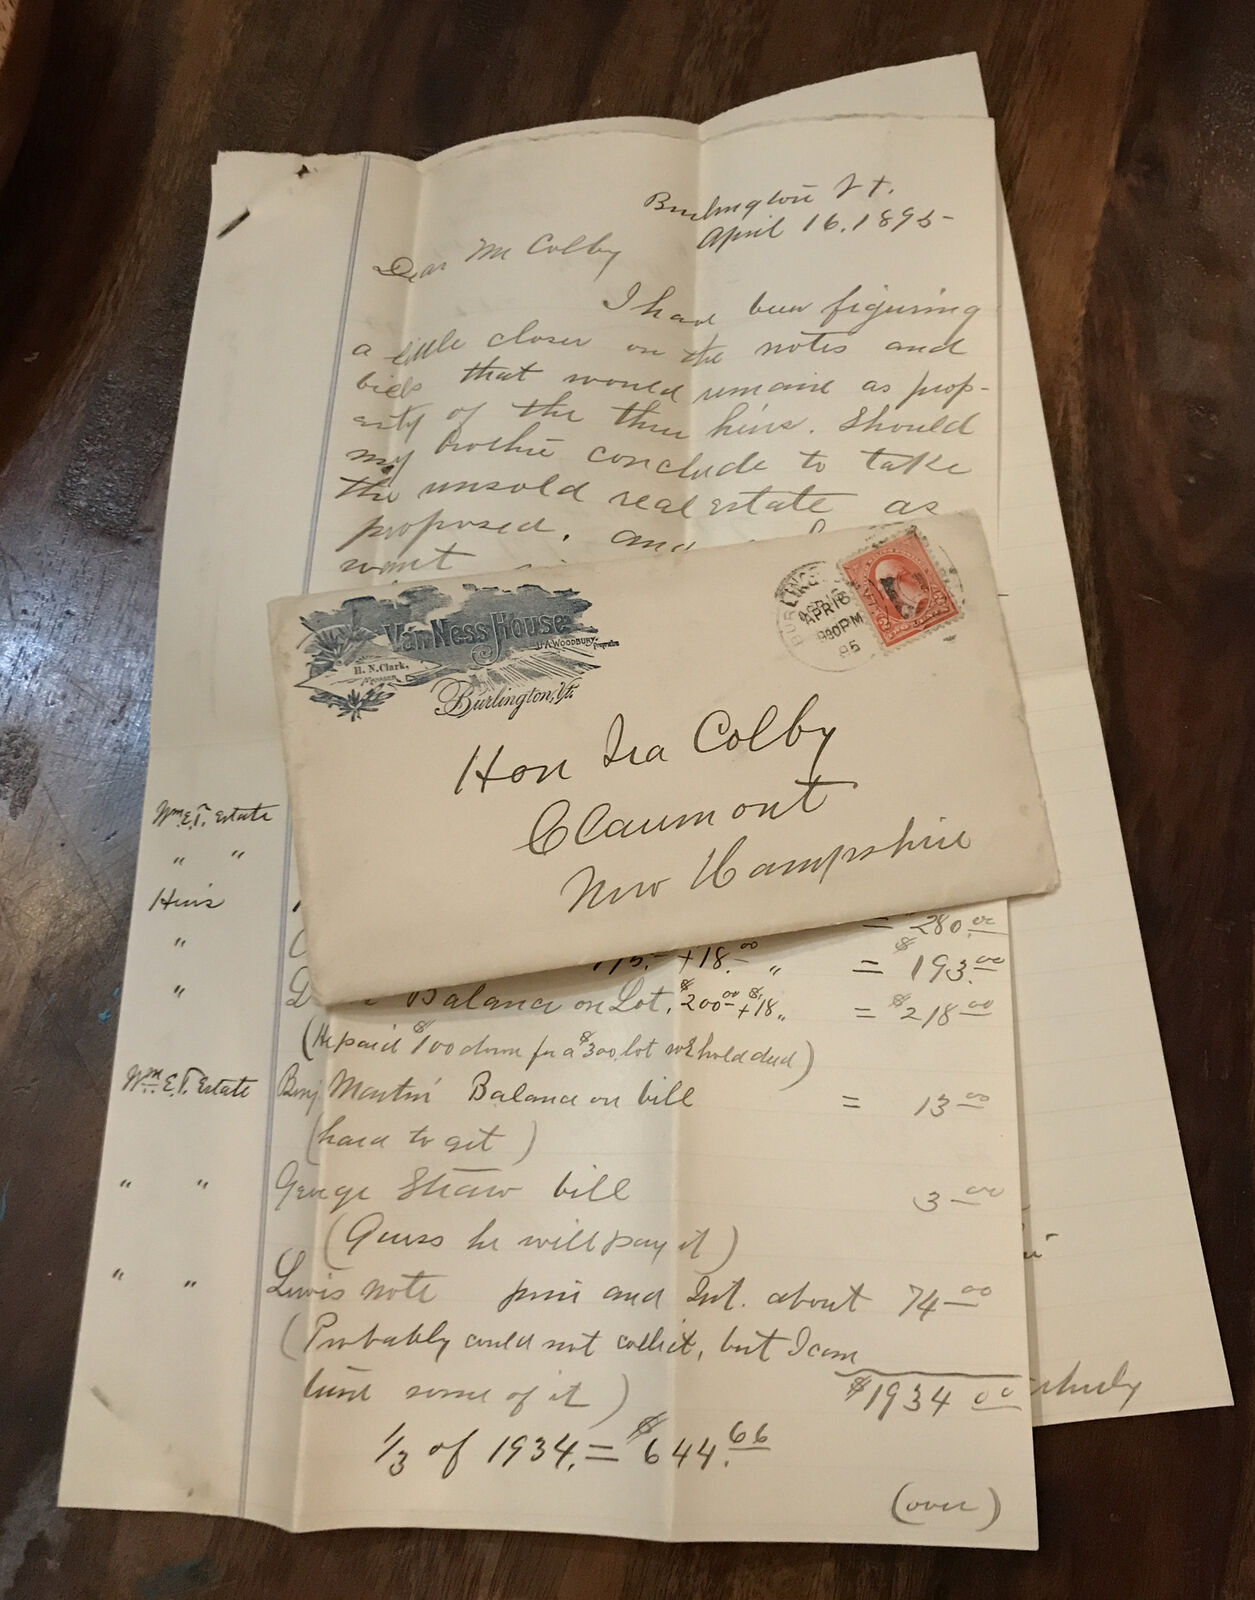 Burlington Vt.
April 16. 1895
Dear Mr Colby
I have been figuring
a little closer on the notes and
bills that would remain as prop-
erty of the three heirs. Should
my brother conclude to take
the unsold real estate as
proposed. and
want
Van Ness House
U.A. Woodbury, Proprietor
H. N. Clark,
Manager
Burlington, Vt.
BURLING
APR 16
830PM
95
Hon Ira Colby
Claremont
New Hampshire
Wm. E. T. Estate
" "
Heirs
= 280.00
" 175. + 18.00 " = $193.00
" Balance on Lot. $200.00 + $18 " = $218.00
(He paid $100 down for a $300 lot we hold deed)
Wm. E. T. Estate Benj Martin Balance on bill = 13.00
(hard to get)
" " George Straw bill 3.00
(Guess he will pay it)
" " Lewis note prin and Int. about 74.00
(Probably could not collect, but I can
turn some of it) $1934 00
1/3 of 1934. = $644.66
(over)